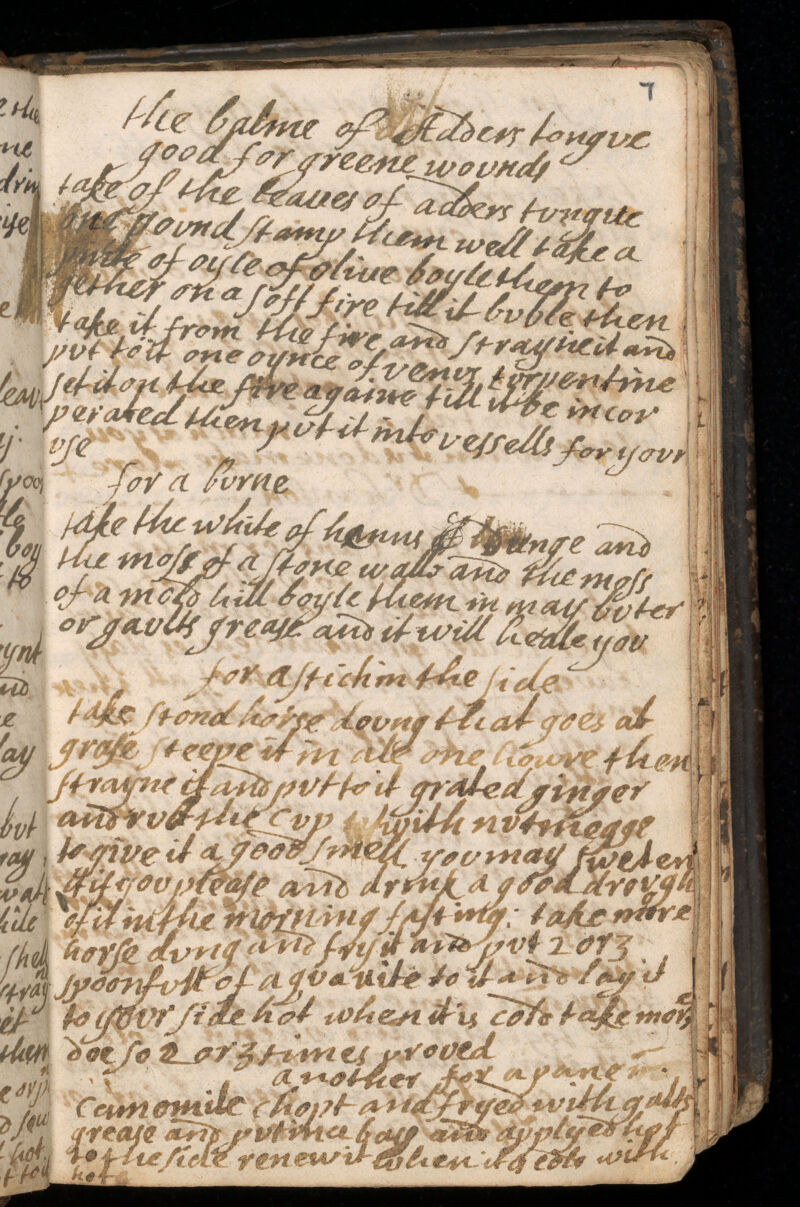 7
the balme of Adders tongue
good for greene wounds
take of the leaues of adders tungue
one pound stamp them well take a
pinte of oyle of olive boyle them to
gether on a soft fire till it buble then
take it from the fire and strayne it and
put to it one oynce of venus turpentine
set it on the fire againe till it be incor
perated then put it into vessells for your
use
for a burne
take the white of henns dunge and
the moss of a stone wall and the moss
of a mold hill boyle them in may buter
or gaults grease and it will heale you
for a stich in the side
take stond horse doung that goes at
grase steepe it in ale one howre then
strayne it and put to it grated ginger
and rub the cup with nutmegge
to give it a good smell you may sweten
it if you please and drink a good drough
of it in the morning fasting: take more
horse dung and fry it and put 2 or 3
spoonfull of aquavite to it and lay it
to your side hot when it is cold take more
doe so 2 or 3 times proved
another for a pane
camomile chopt and fryed with galts
grease and put in a bag and applyed hot
to the side renew it when it is cold with
hot